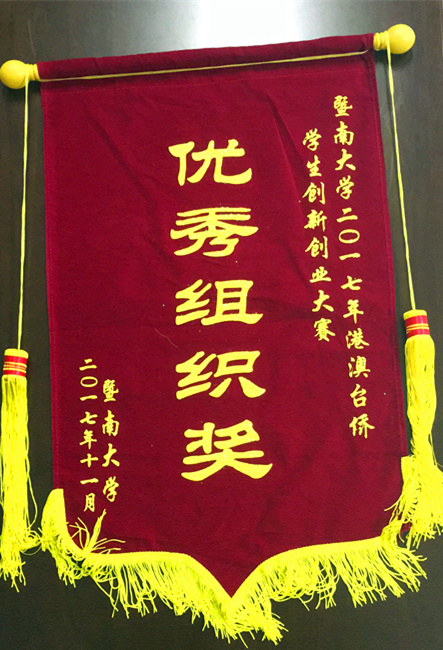 暨南大学二〇一七年港澳台侨
学生创新创业大赛
优秀组织奖
暨南大学
二〇一七年十一月